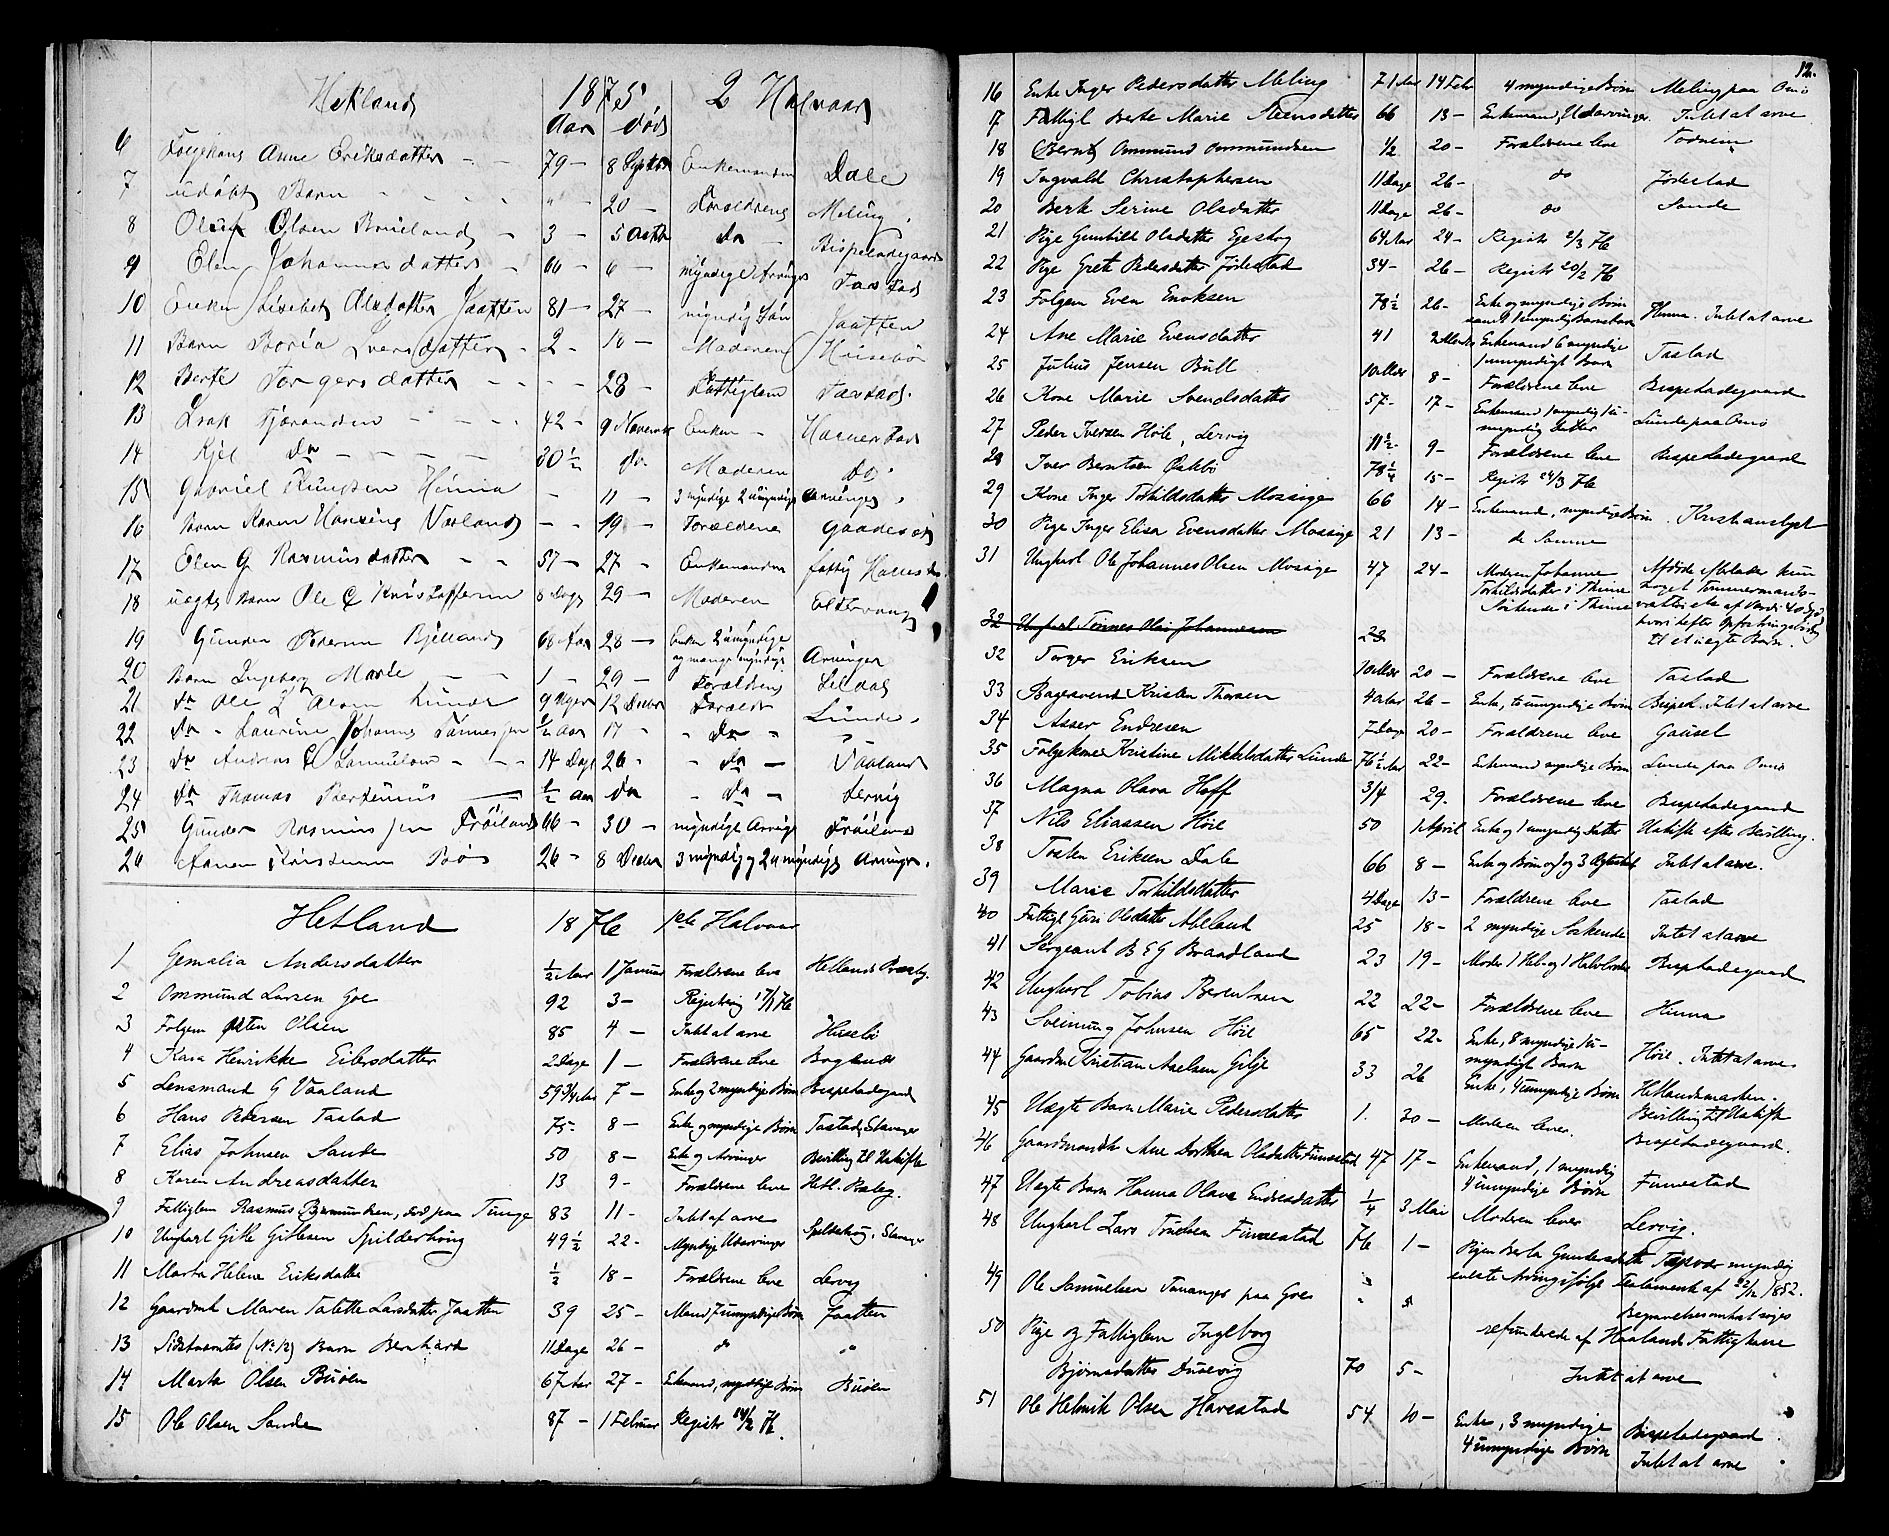 Hetland 1875 2 Halvaar
Aar død
6 Folgekone Anne Eriksdatter 79 – 8 Septbr Enkemanden Dale
7 udøbt Barn " 20 – Forældrene Meling
8 Oluf Olsen Brueland 3 – 5 Octbr do Bispeladegaard
9 Elen Johannesdatter 66 – 6 – myndige Arvinger Tastad
10 Enken Lisebet Olsdatter Jaatten 81 – 27 – myndig Søn Jaatten
11 Barn Boria Iversdatter 2 – 10 – Moderen Husebø
12 Berte Torgersdatter – 28 – Fattiglem Tastad
13 Isak Tjerandsen 42 – 9 Novembr Enken –
14 Kjel do 30 1/2 do Moderen do
15 Gabriel Hinna – 11 – 3 myndige 2 umyndige Arvinger
16 Barn Karen Vaaland – 19 – Forældrene
17 Elen G Rasmusdatter 57 – 27 – Enkemanden fattig
18 uegte Barn Ole C Kristoffersen 8 Dage 29 – Moderen
19 Gunder Pedersen Bjelland 68 Aar 28 – Enken 2 umyndige
og mange myndige Arvinger
20 Barn Ingeborg Marie 1 – 29 – Forældrene
21 do Ole Lunde 9 Uger 12 Decbr Forældr Lunde
22 do Laurine Johanne Tønnesen 1/2 Aar 17 – do "
23 do Andreas Samuelsen 14 Dage 26 – do – Vaaland
24 do Thomas Bertinius 1/2 Aar do do – Lervig
25 Gunder Rasmussen Frøiland 66 – 30 – myndige Arvinge Frøiland
26 26 – 8 Decbr 3 myndig og 2 umyndige Arvinger.
Hetland 1876 1ste Halvaar
1 Gemalia Andersdatter 1/2 Aar 1 Januar Forældrene leve Hetlands Præstg.
2 Ommund Larsen Goe 92 3 – 17/1 76
3 Folgem Østen Olsen 85 4 – Intet at arve Husebø
4 Kara Henrikke Eilesdatter 2 Dage 1 – Forældrene leve
5 Lensmand G Vaaland 59 3/4 Aar 7 – Enke og 2 myndige Børn Bispeladegaard
6 Hans Pedersen Tastad 75 – 8 – Enke og myndige Børn Tastad, Stavanger
7 Elias Johnsen Sande 50 8 – Enke og Arvinger Bevilling til Uskifte
8 Karen Andreasdatter 13 9 – Forældrene leve Hetl. Præstg.
9 Fattiglem Rasmus, død paa Tunge 83 11 – Intet at arve
10 Ungkarl Gitle Gitlesen Spilderhoug 49 1/2 22 – Myndige Udarvinger Spilderhoug, Stavanger
11 Marta Helene Eriksdatter 1/2 18 – Forældrene leve Lervig
12 Gaardmk Maren Talette Larsdatter Jaatten 39 25 – Mand 7 umyndige Børn Jaatten
13 Sidstnævntes (No 12) Barn Bernhard 11 Dage 26 – do "
14 Marta Olsen Buøen 67 Aar 27 – Enkemand, myndige Børn Buøen
15 Ole Olsen Sande 87 – 1 Februar Registr 24/2 76.
12.
16 Enke Inger Pedersdatter Meling 71 Aar 14 Febr 4 myndige Børn Meling paa Omø
17 Fattigl Berte Marie Steensdatter 66 13 – Enkemand, Udarvinger. Intet at arve
18 Bernt Ommund Ommundsen 1/2 20 – Forældrene leve Todneim
19 Ingvald Christophersen 11 Dage 26 – do Jødestad
20 Berte Serine Olsdatter 11 Dage 26 – do Sande
21 Pige Gunhild Olsdatter Egeskog 64 Aar 24 – Registr 2/3 76
22 Pige Grete Pedersdatter Jødestad 34 – 26 – Registr 20/2 76
23 Folgem Even Enoksen 78 1/2 26 – Enke og myndige Børn
samt 1 umyndig Barnebarn Hinna. Intet at arve
24 Ane Marie Evensdatter 41 Enkemand 6 myndige
1 umyndigt Barn Tastad
25 Julius Jensen Bull 10 Mdr 8 – Forældrene leve Bispeladegaard
26 Kone Marie Svendsdatter 57 – 17 – Enkemand 1 myndig 1 u-
myndig datter Lunde paa Omø
27 Peder Iversen Høle, Lervig 11 1/2 9 – Forældrene leve Bispeladegaard
28 Iver Berntsen Østebø 78 1/2 15 – Registr 24/3 76
29 Kone Inger Torkildsdatter Mossige 66 14 – Enkemand, myndige Børn. Kristianslyst
30 Pige Inger Elisa Evensdatter Mossige 21 13 – de Samme
31 Ungkarl Ole Johannes Olsen Mossige 47 24 – Modren Johanne
Torkilsdatter i Thime
Søskende i Thime
Afdøde efterlader kun
noget Tømmermands-
til et uegte Barn.
32 Ungkarl Tønnes Olai Johannesen 28
32 Torger Eriksen 10 Mdr 20 – Forældrene leve Tastad
33 Bagersvend Kristen Thorsen 40 Aar 26 – Enke, 6 umyndige Børn Bispel. Intet at arve
34 Asser Endresen 7 Dage 20 – Forældrene leve Gausel
35 Folgekone Kristine Mikkelsdatter Lunde 76 1/2 Aar 22 – Enkemand myndige Børn Lunde paa Omø
36 Magna Olava Hoff 3/4 29. Forældrene leve Bispeladegaard
37 Nils Eliassen Høie 50 1 April Enke og 1 umyndig Datter Uskifte efter Bevilling.
38 Tosten Eriksen Dale 66 8 – Enke og Børn Intet at arve.
39 Marie Torkildsdatter 4 Dage 13 – Forældrene leve Tastad
40 Fattigl Guri Olsdatter Aleland 25 18 – 2 myndige Søskende Intet at arve
41 Sergeant B E G Braadland 23 19 – Moder 1 Hel- og 1 Halvbroder Bispeladegaard
42 Ungkarl Tobias Berentsen 22 22 – Forældrene leve Hinna
43 Sveinung Johnsen Høie 65 22 – Enke, 8 myndige 1 u-
myndigt Barn Høie. Intet at arve
44 Gaardm Kristian Axelsen Gilje 33 26 Enke, 4 umyndige Børn Hetlandsmarken.
Bevilling til Uskifte
45 Uegte Barn Marie Pedersdatter 1. 30 – Modren lever. Bispeladegaard.
46 Gaardmandsk Ane Dorthea Olsdatter Finnestad 47 17 – Enkemand, 1 myndig
4 umyndige Børn Finnestad
47 Uegte Barn Hanna Olava Endresdatter 1/4 3 Mai Modren lever Lervig.
48 Ungkarl Lars Troelsen Finnestad 76 1 – Pigen Berta Gundersdatter myndig
eneste Arving ifølge Testamente af 22/12 1852.
49 Ole Samuelsen Tananger paa Goe " " Begravelsesomkost søges
refunderede af Haalands Fattigkasse
50 Pige og Fattiglem Ingeborg
Bjørnsdatter Dusevig 70 5 – Intet at arve
51 Ole Helmik Olsen Harestad 54 10 – Enke, 3 myndige
4 umyndige Børn Bispeladegaard
Intet at arve